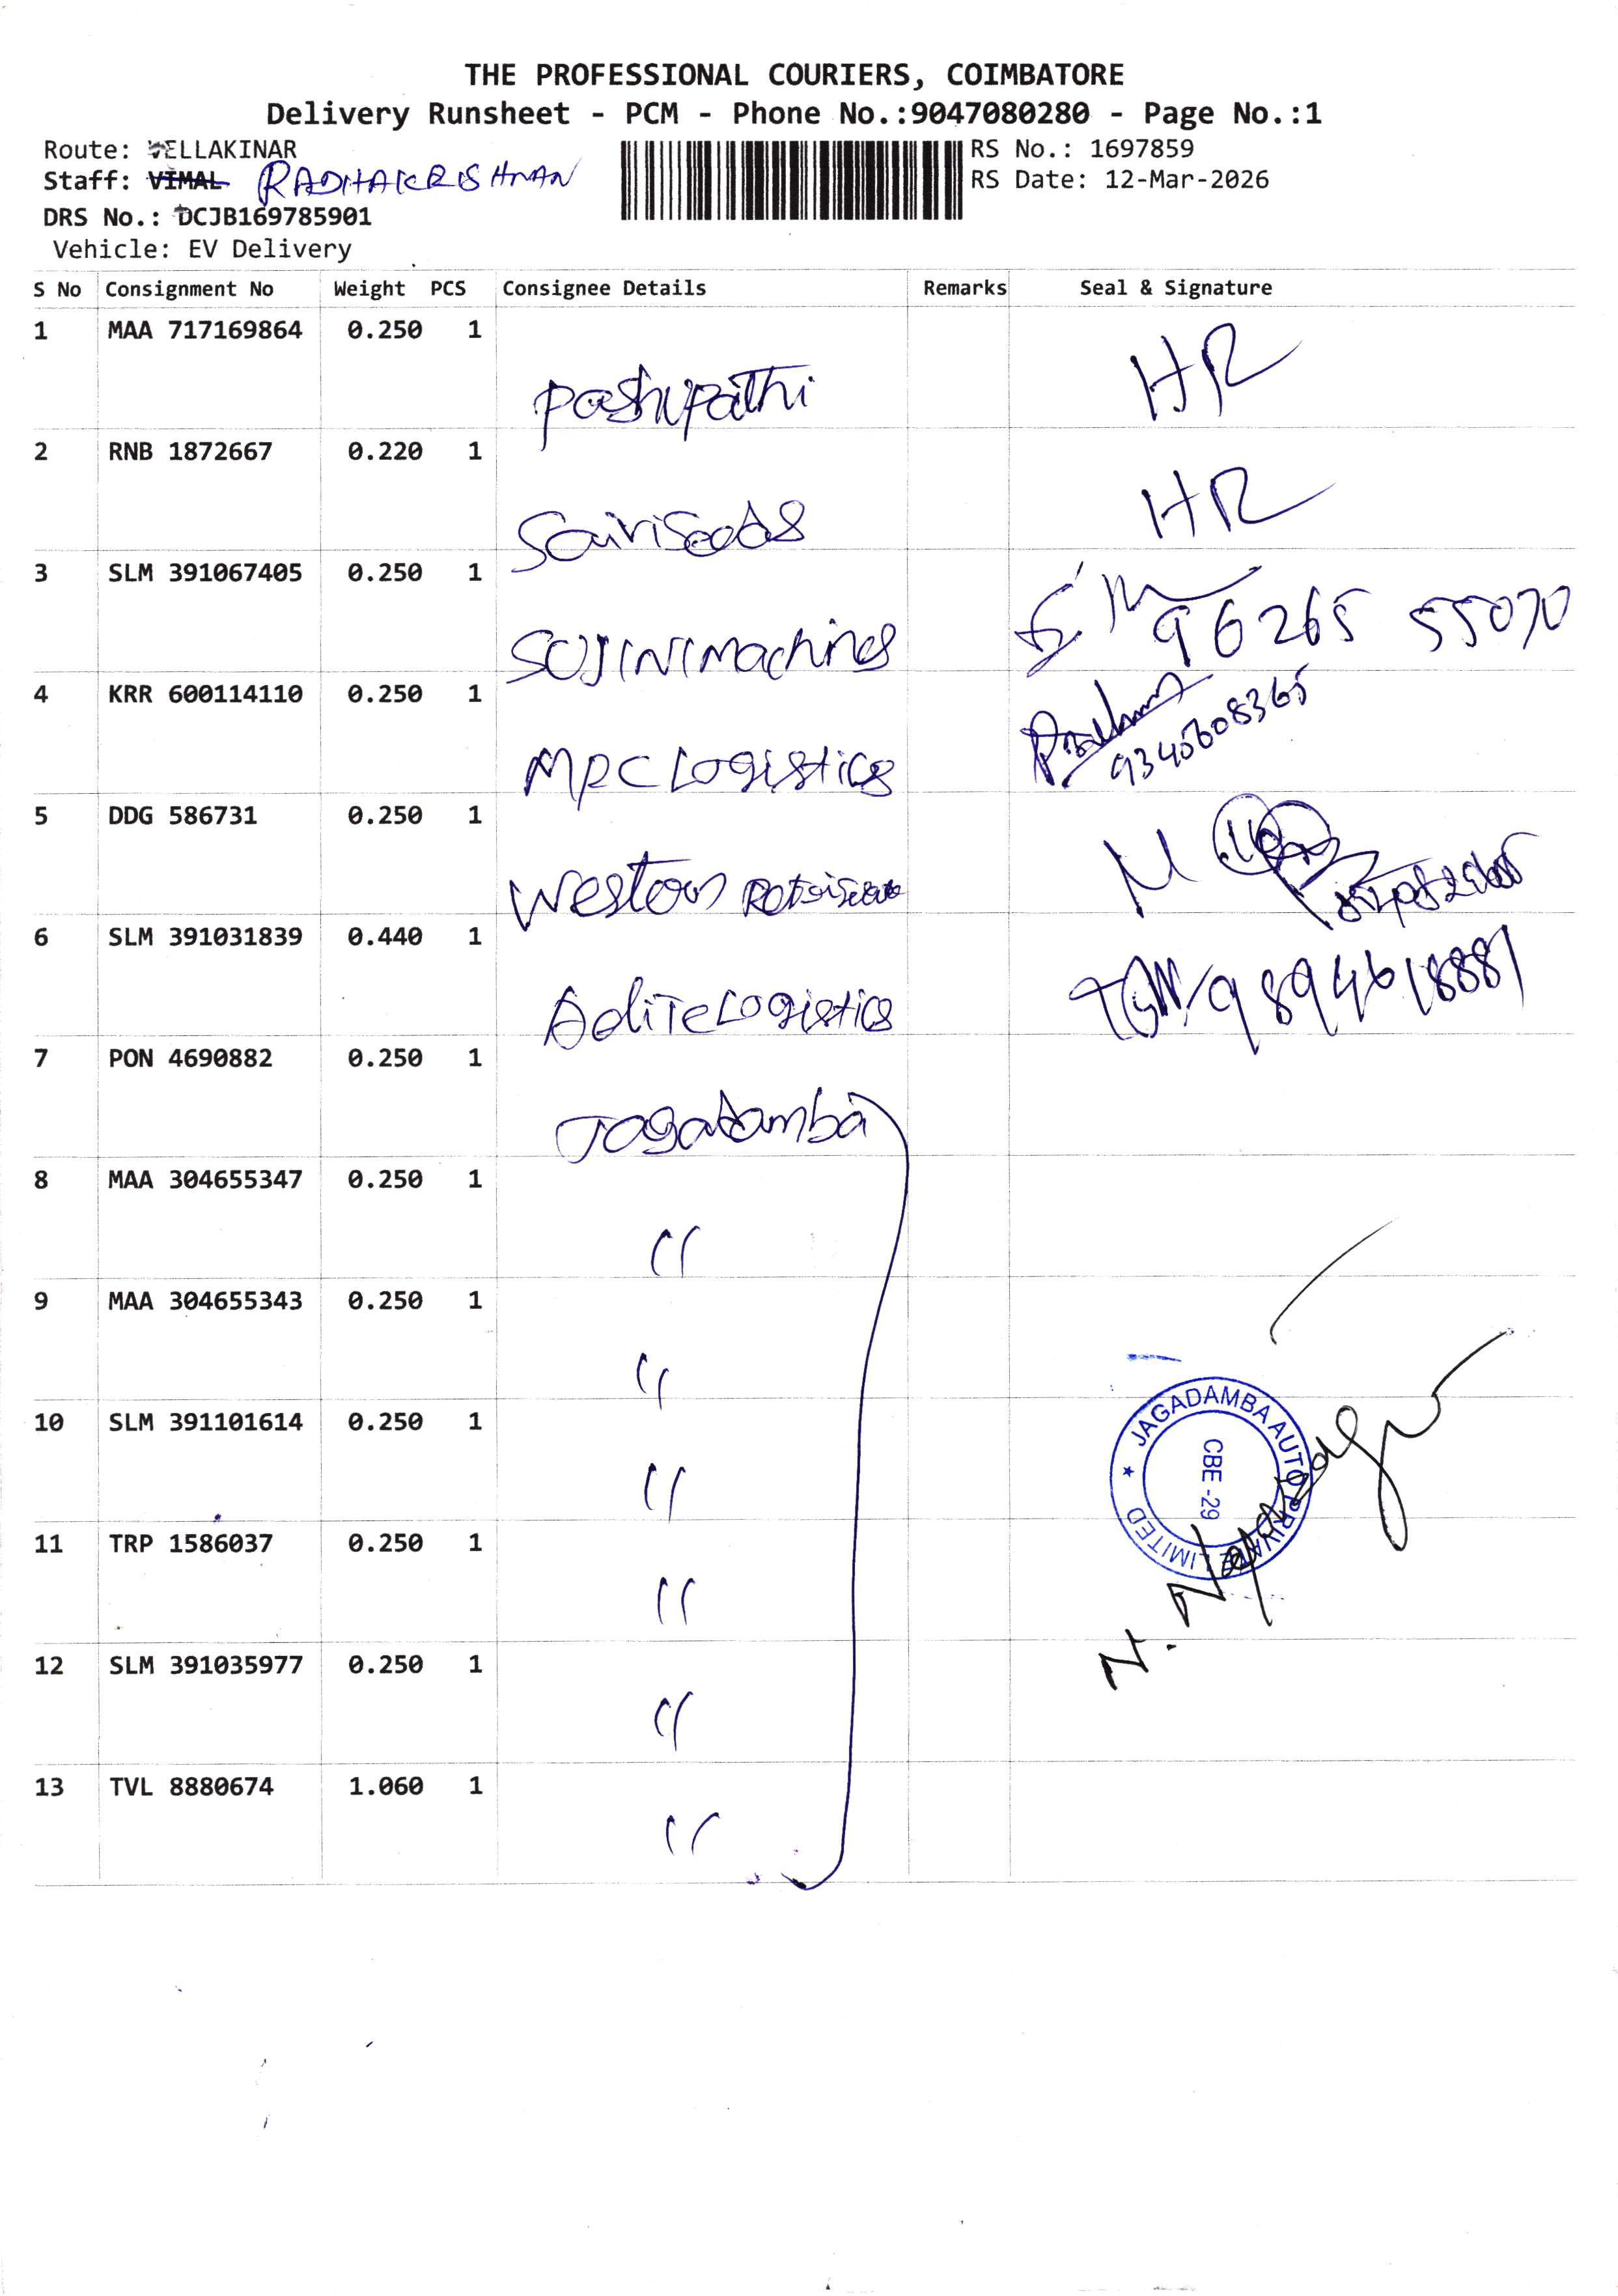 THE PROFESSIONAL COURIERS, COIMBATORE
Delivery Runsheet - PCM - Phone No.:9047080280 - Page No.:1
Route: VELLAKINAR
Staff: VIMAL RADHAKRISHNAN
DRS No.: DCJB169785901
Vehicle: EV Delivery
RS No.: 1697859
RS Date: 12-Mar-2026
S No Consignment No Weight PCS Consignee Details Remarks Seal & Signature
1 MAA 717169864 0.250 1
Pashupathi HR
2 RNB 1872667 0.220 1
HR
3 SLM 391067405 0.250 1
SUJINI machines 96265 55070
4 KRR 600114110 0.250 1
MPC Logistics
5 DDG 586731 0.250 1
Western
6 SLM 391031839 0.440 1
Logistics 9894618881
7 PON 4690882 0.250 1
Jagadamba
8 MAA 304655347 0.250 1
"
9 MAA 304655343 0.250 1
"
10 SLM 391101614 0.250 1
"
JAGADAMBA AUTO PRIVATE LIMITED
CBE -29
11 TRP 1586037 0.250 1
"
12 SLM 391035977 0.250 1
"
13 TVL 8880674 1.060 1
"